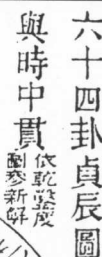 六十四卦貞辰圖
與時中貫
依乾鑿度
圖參新解